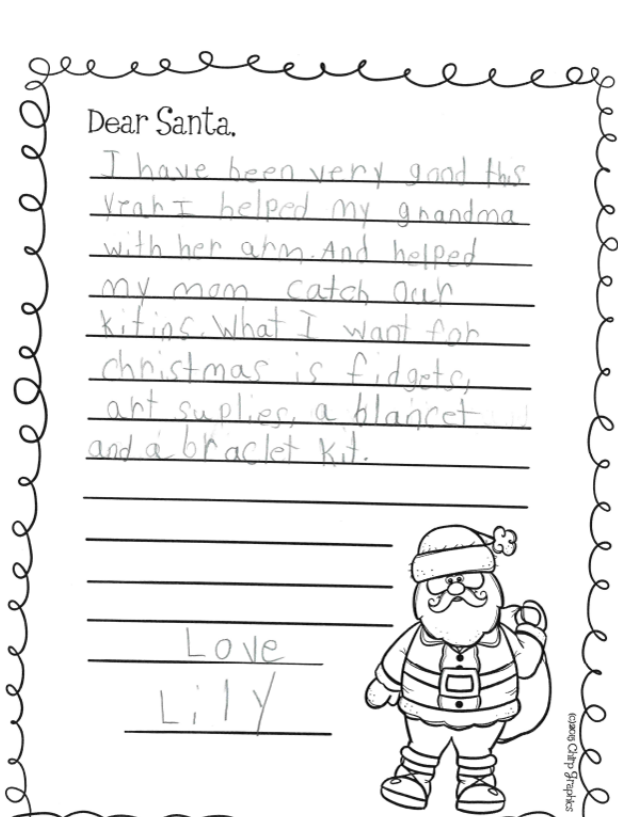 Dear Santa,
I have been very good this
year I helped my grandma
with her arm. And helped
my mom catch our
kitins. What I want for
christmas is fidgets,
art suplies, a blancet
and a braclet kit.
Love
Lily
©2015 Chirp Graphics